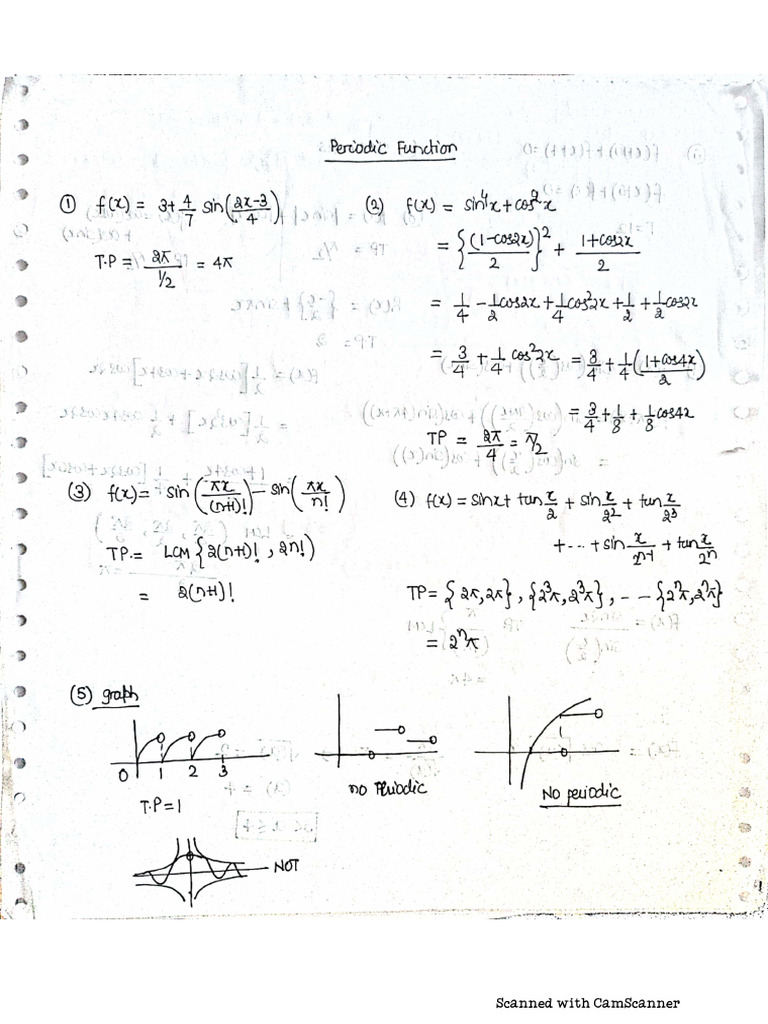 Periodic Function
① f(x) = 3+4/7 sin((2x-3)/4)
T.P = 2π/(1/2) = 4π
(2) f(x) = sin⁴x+cos²x
= {(1-cos2x)/2}² + (1+cos2x)/2
= 1/4 - 1/2 cos2x + 1/4 cos²2x + 1/2 + 1/2 cos2x
= 3/4 + 1/4 cos²2x = 3/4 + 1/4((1+cos4x)/2)
= 3/4 + 1/8 + 1/8 cos4x
TP = 2π/4 = π/2
(3) f(x) = sin(πx/(n+1)!) - sin(πx/n!)
TP. = LCM {2(n+1)! , 2n!)
= 2(n+1)!
(4) f(x) = sinx + tan x/2 + sin x/2² + tan x/2³
+ ... + sin x/2ⁿ⁻¹ + tan x/2ⁿ
TP = {2π, 2π}, {2³π, 2³π}, - - {2ⁿπ, 2ⁿπ}
= 2ⁿπ
(5) graph
0 1 2 3
T.P = 1
no Periodic
1
No periodic
NOT
Scanned with CamScanner